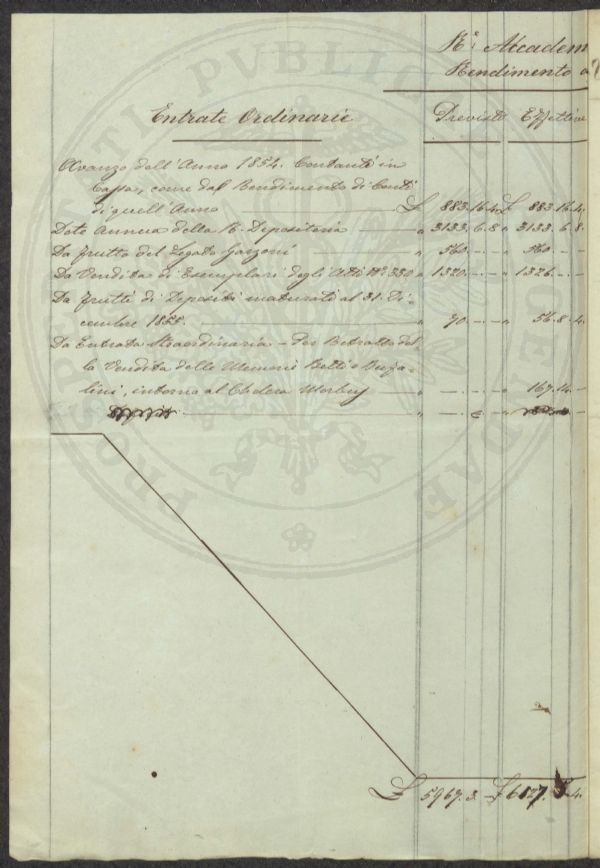 R.ª Accadem
Rendimento a
Entrate Ordinarie Previste Effettive
Avanzo dell'Anno 1854. Contanti in
Cassa, come dal Rendimento di Conti
di quell'Anno £ 883.16.4 £ 883.16.4.
Dote Annua della R. Depositeria " 3133.6.8 " 3133.6.8.
Da frutto del Legato Garzoni " 560.-.- " 560.-.-
Da Vendita di Esemplari degli Atti N.º 330 " 1320.-.- " 1326.-.-
Da frutti di Depositi maturati al 31. Di-
cembre 1855. " 70.-.- " 56.8.4.
Da Entrata Straordinaria - Per Retratto del
la Vendita delle Memorie Betti e Bufa-
lini, intorno al Cholera Morbus " -.-.- " 167.14.-
£ 5967.3.- £ 6127.5.4.
PROSPERITATI PUBLICAE